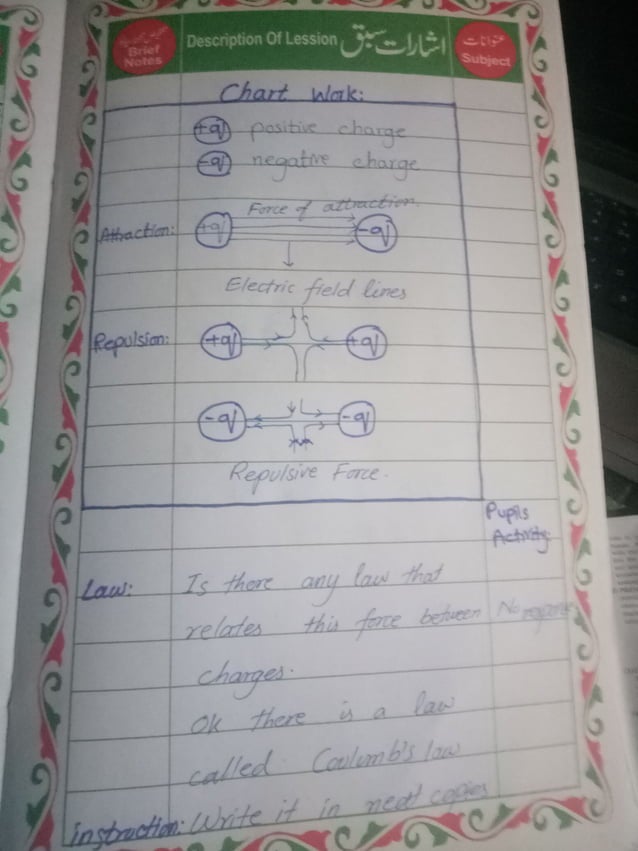 Brief Notes
Description Of Lession اشارات سبق
عنوانات
Subject
Chart Work:
+q positive charge
-q negative charge
Force of attraction.
Attraction: +q -q
Electric field lines
Repulsion: +q +q
-q -q
Repulsive Force.
Pupils
Activity:
Law: Is there any law that
relates this force between No response
charges.
Ok there is a law
called Coulumb's law
instruction: Write it in neat copies